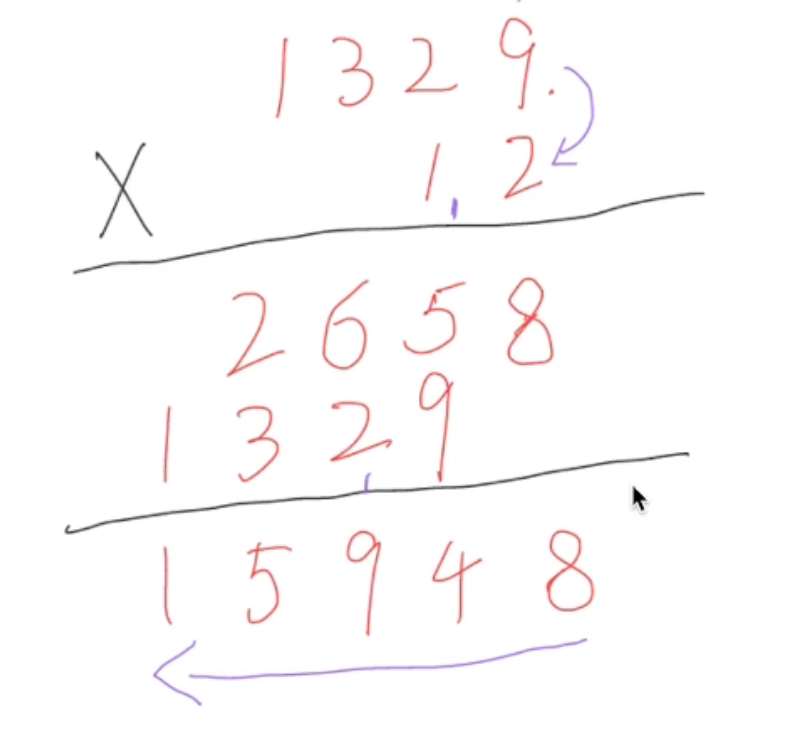 1 3 2 9.
X 1 2
1
2 6 5 8
1 3 2 9
1
1 5 9 4 8